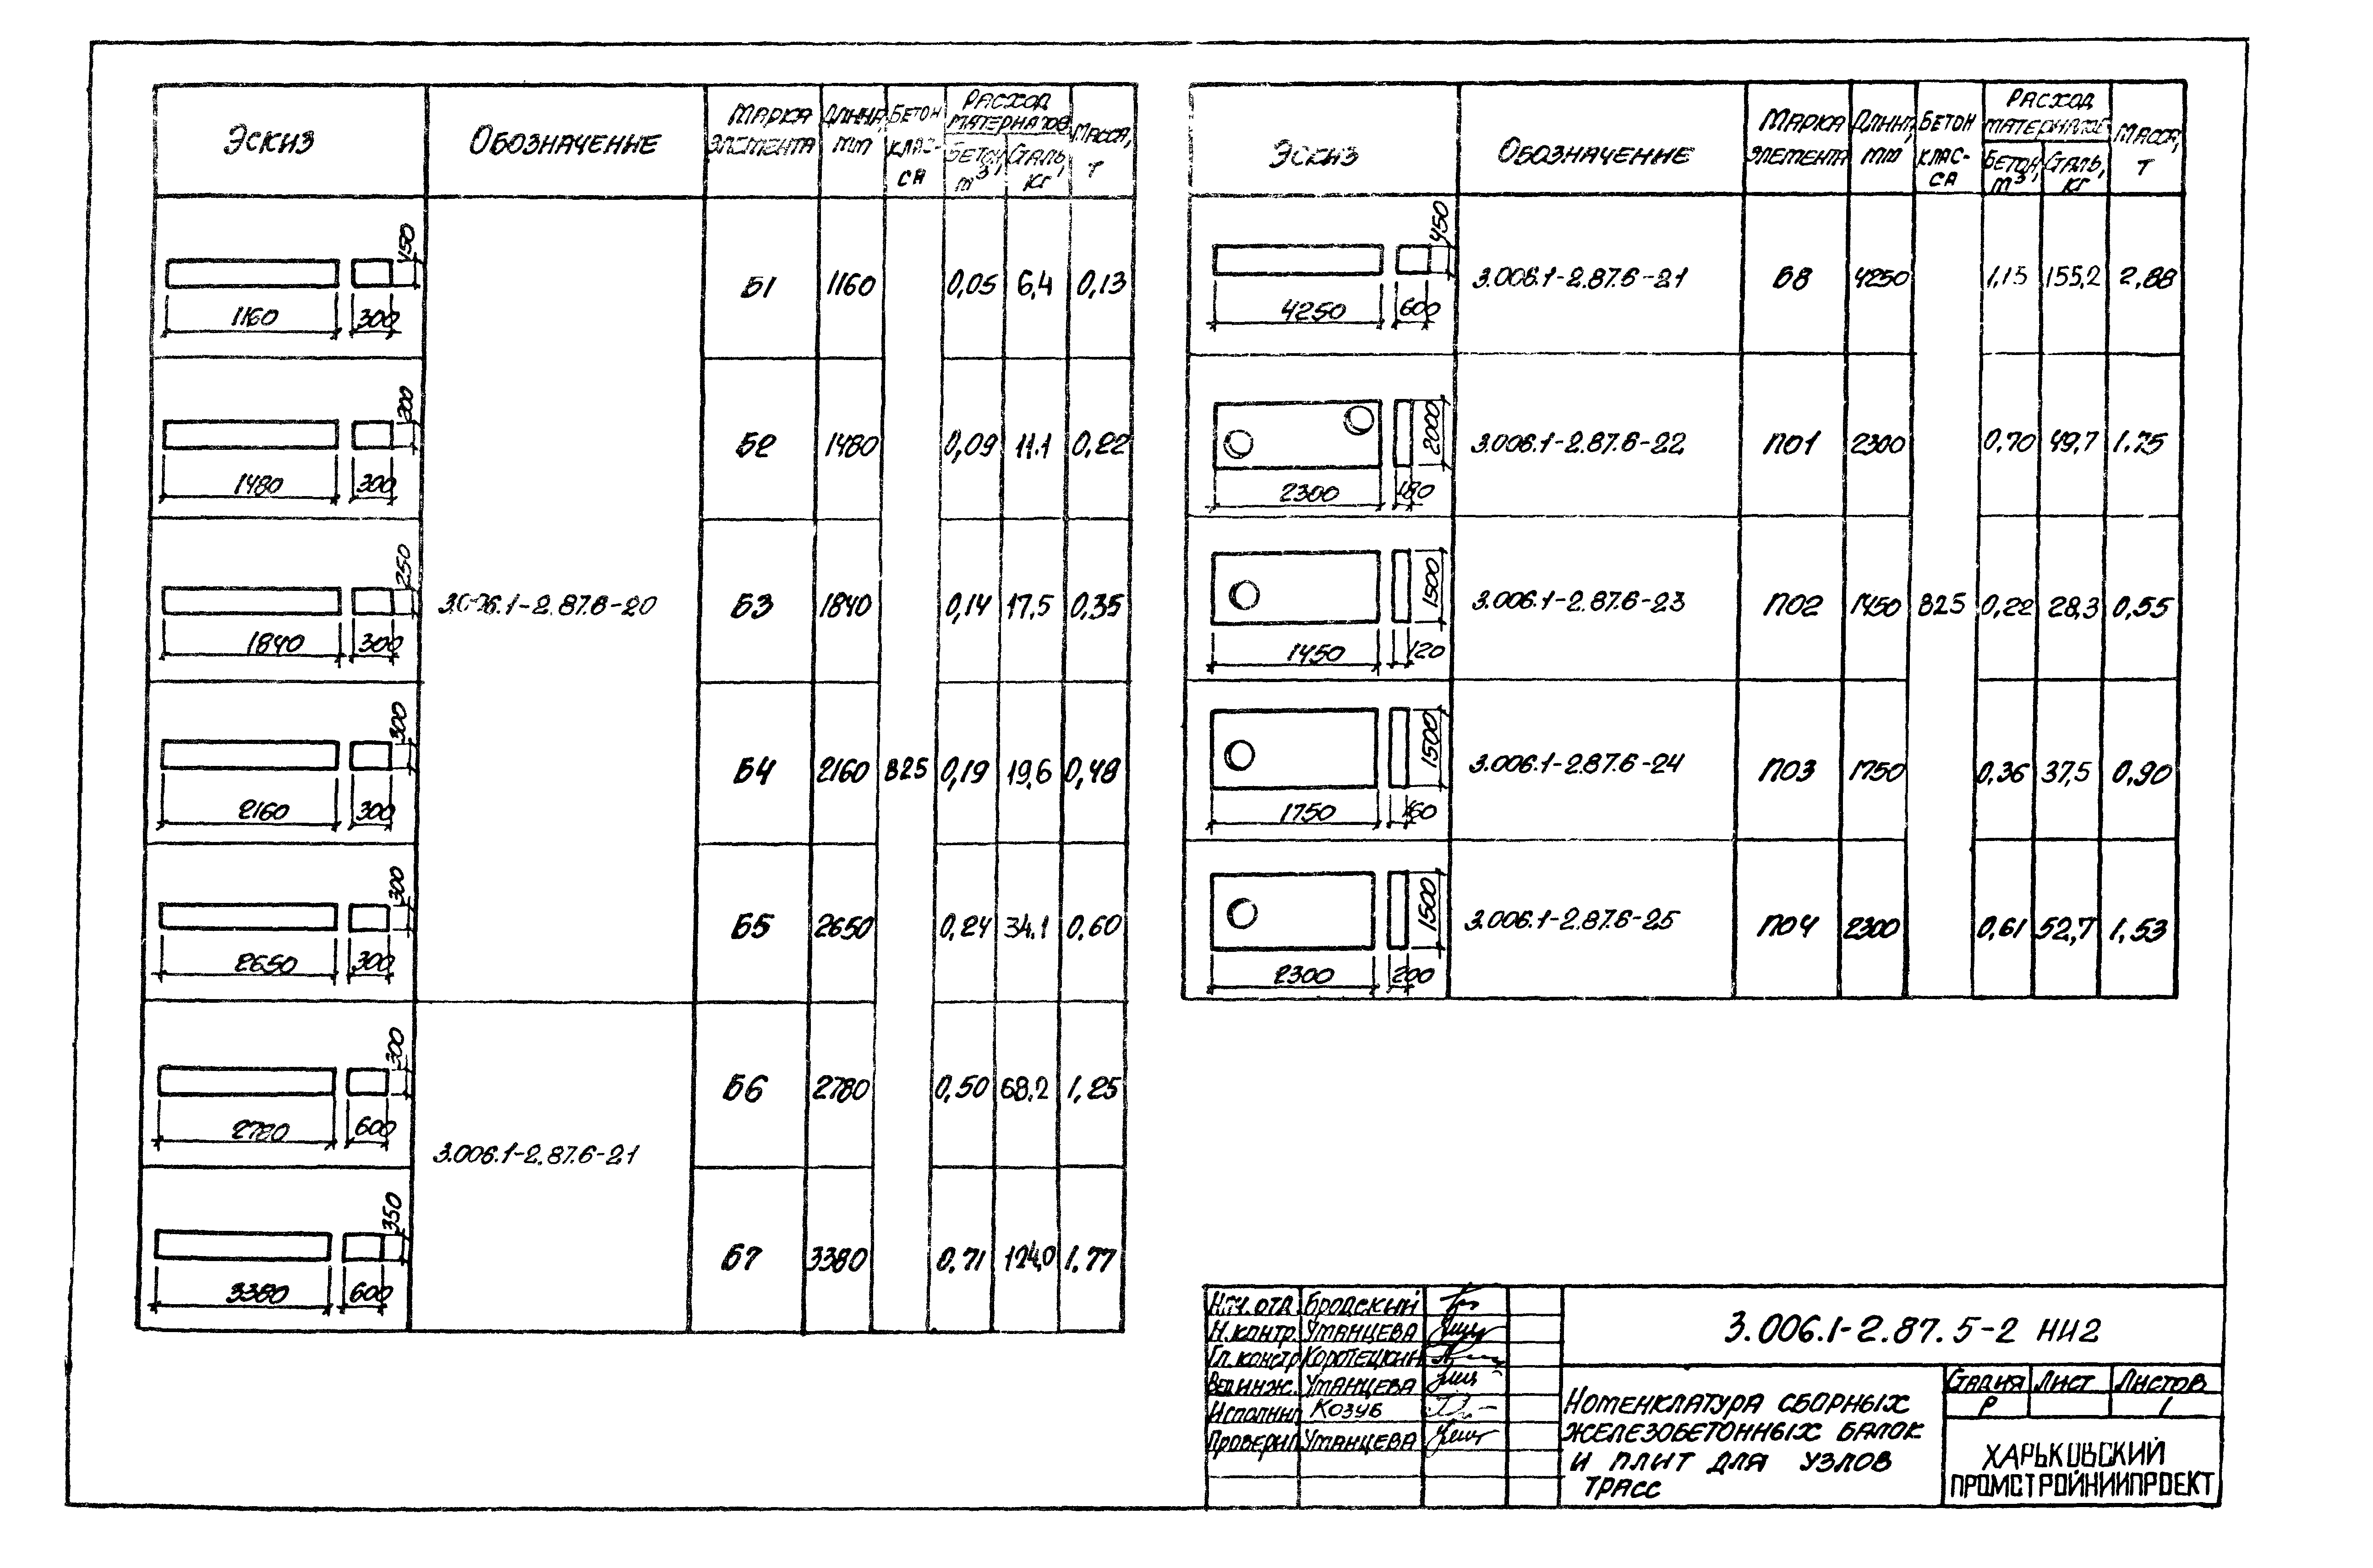 Эскиз Обозначение Марка элемента Длина, мм Бетон клас-са Расход материалов Бетон, м³ Сталь, кг Масса, т
1160 300 150 Б1 1160 0,05 6,4 0,13
1480 300 200 Б2 1480 0,09 11.1 0,22
1840 300 250 3.006.1-2.87.6-20 Б3 1840 0,14 17,5 0,35
2160 300 300 Б4 2160 В25 0,19 19,6 0,48
2650 300 300 Б5 2650 0,24 34.1 0,60
2780 600 300 3.006.1-2.87.6-21 Б6 2780 0,50 68.2 1,25
3380 600 350 Б7 3380 0,71 124,0 1,77
Эскиз Обозначение Марка элемента Длина, мм Бетон клас-са Расход материалов Бетон, м³ Сталь, кг Масса, т
4250 600 450 3.006.1-2.87.6-21 Б8 4250 1,15 155,2 2,88
2300 180 2000 3.006.1-2.87.6-22 ПО1 2300 0,70 49,7 1.75
1450 120 1500 3.006.1-2.87.6-23 ПО2 1450 В25 0,22 28,3 0,55
1750 160 1500 3.006.1-2.87.6-24 ПО3 1750 0,36 37,5 0,90
2300 200 1500 3.006.1-2.87.6-25 ПО4 2300 0,61 52,7 1,53
Нач. отд. Бродский
Н. контр. Уманцева
Гл. констр Коротецкий
Вед. инж. Уманцева
Исполнил Козуб
Проверил Уманцева
3.006.1-2.87.5-2 НИ2
Номенклатура сборных
железобетонных балок
и плит для узлов
трасс
Стадия Лист Листов
Р 1
ХАРЬКОВСКИЙ
ПРОМСТРОЙНИИПРОЕКТ